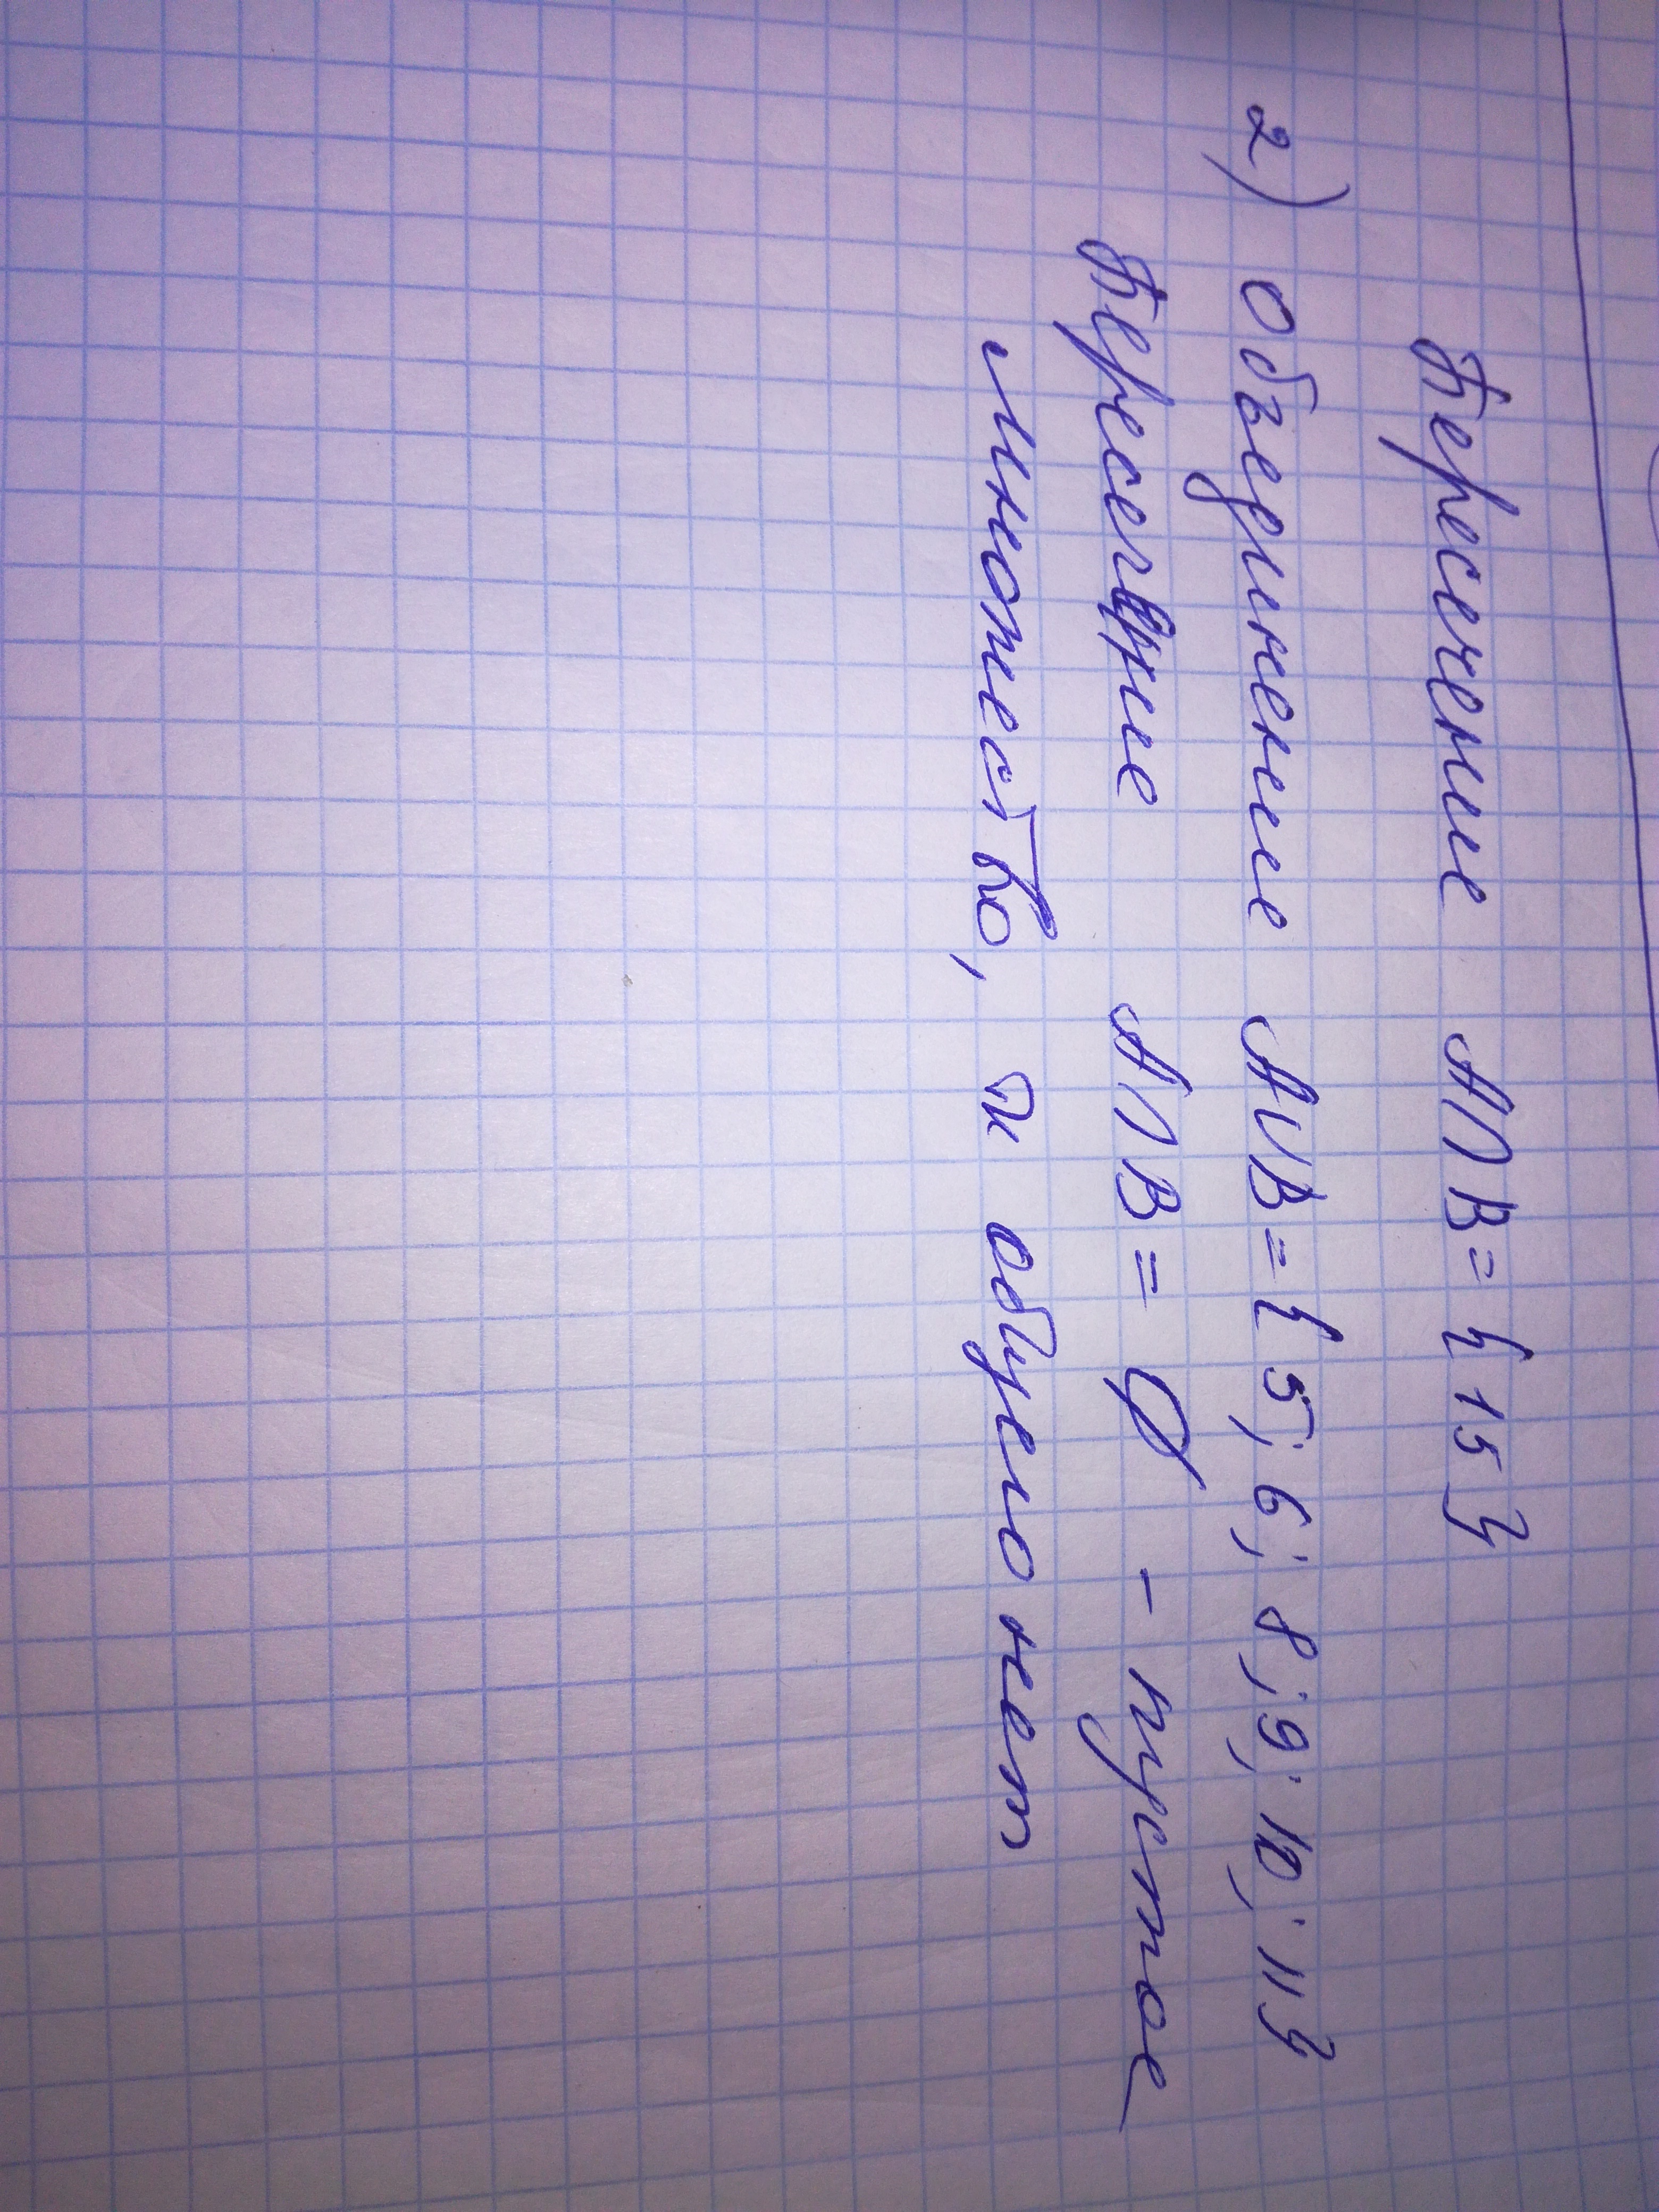 Пересечение A∩B={15}
2) Объединение A∪B={5; 6; 8; 9; 10; 11}
Пересечение A∩B=∅ - пустое
множество, тк общего нет